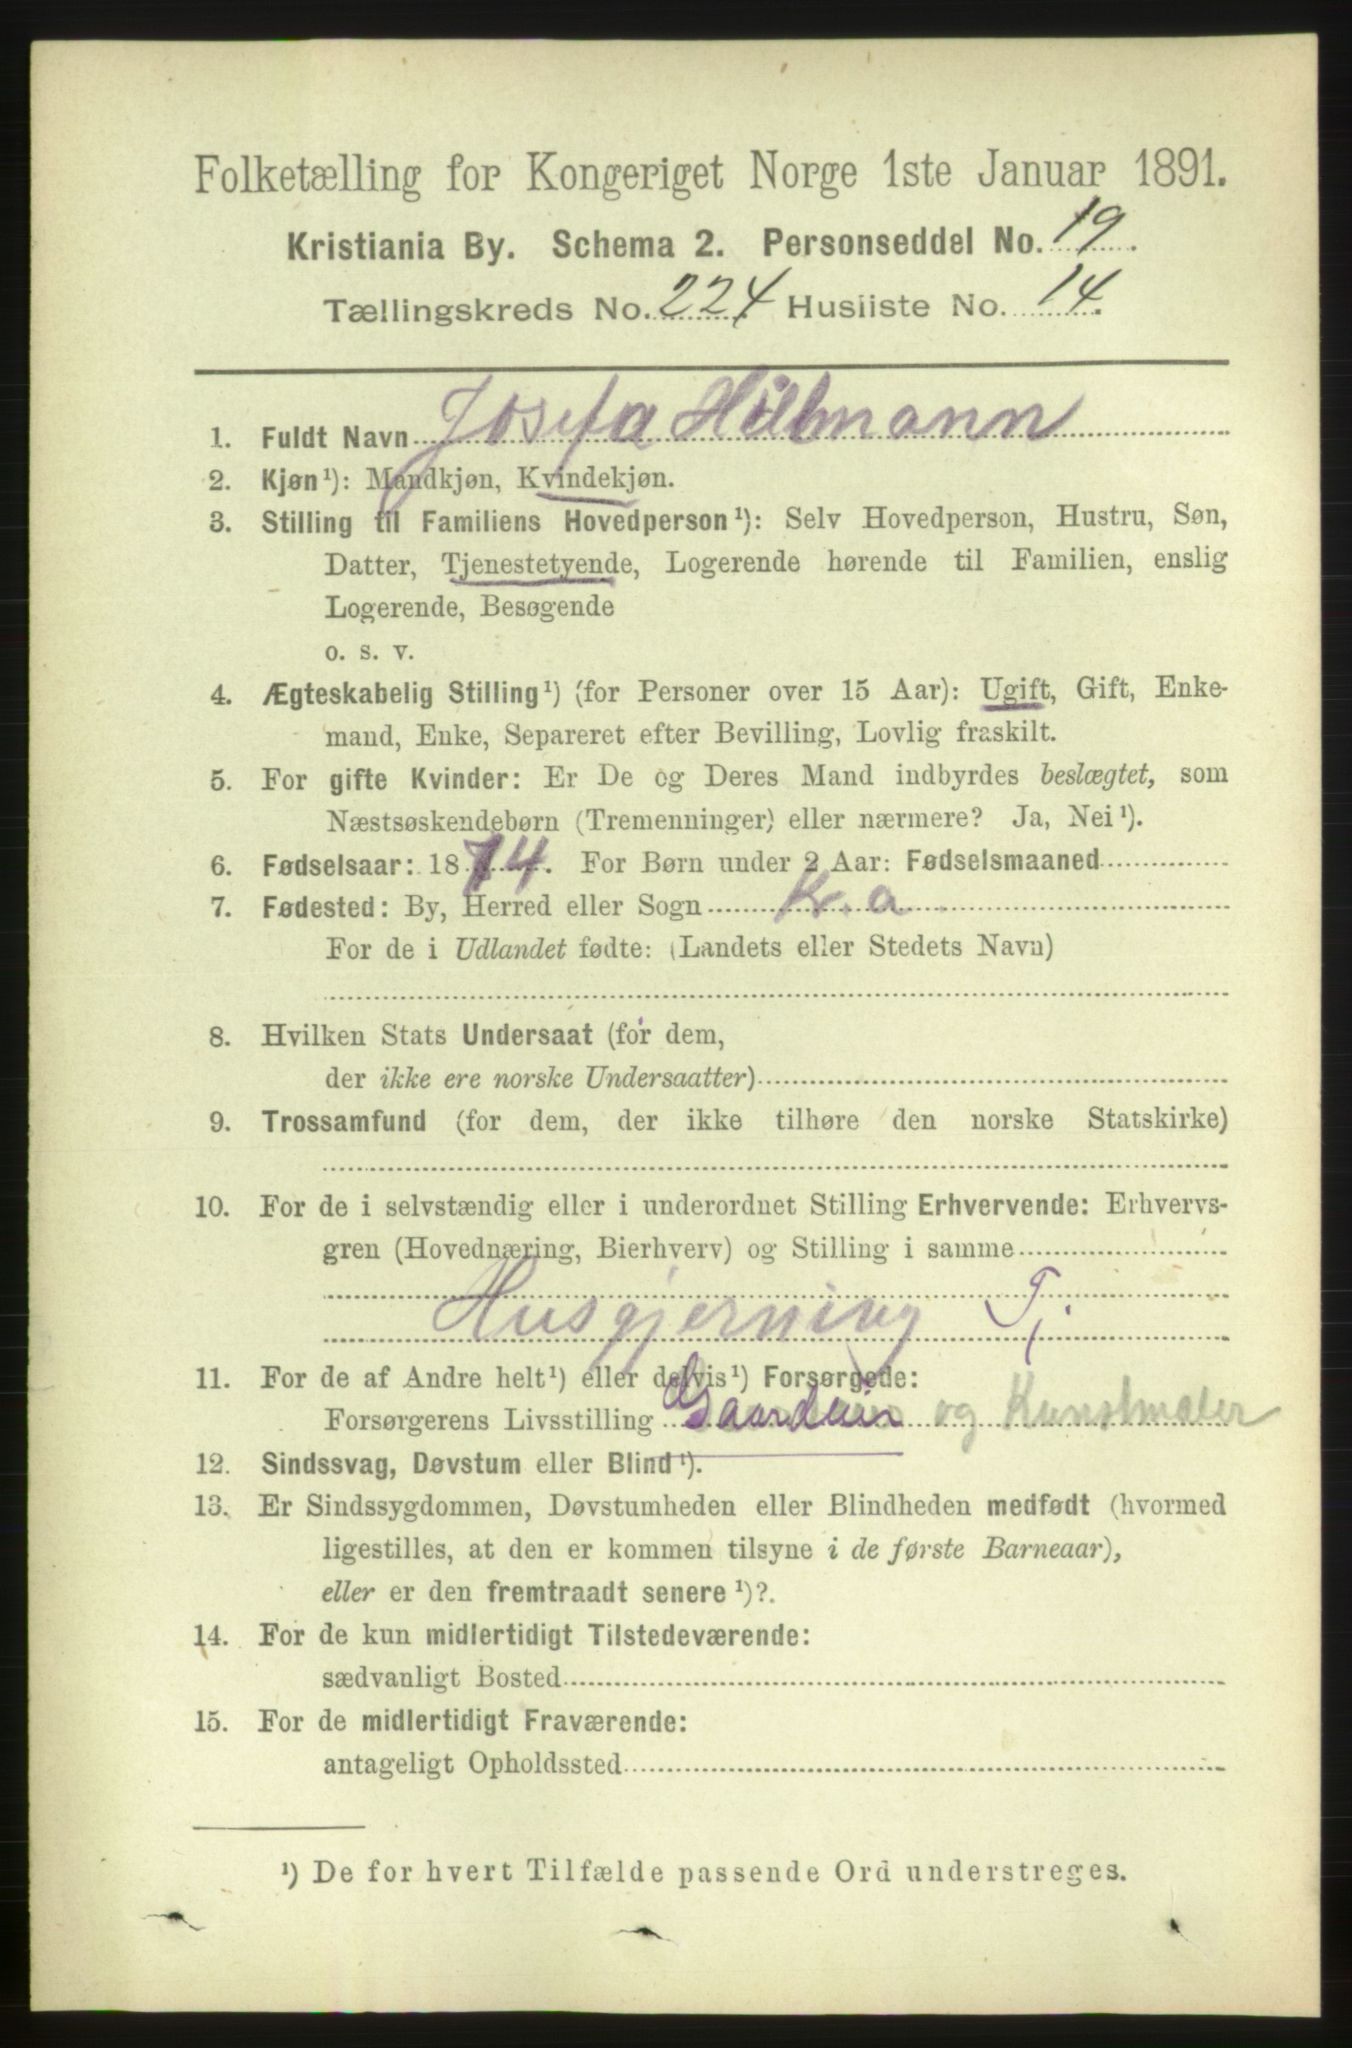 Folketælling for Kongeriget Norge 1ste Januar 1891.
Kristiania By. Schema 2. Personseddel No. 19.
Tællingskreds No. 224 Husliste No. 14.
1. Fuldt Navn Josefa
2. Kjøn¹): Mandkjøn, Kvindekjøn.
3. Stilling til Familiens Hovedperson¹): Selv Hovedperson, Hustru, Søn,
Datter, Tjenestetyende, Logerende hørende til Familien, enslig
Logerende, Besøgende
o. s. v.
4. Ægteskabelig Stilling¹) (for Personer over 15 Aar): Ugift, Gift, Enke-
mand, Enke, Separeret efter Bevilling, Lovlig fraskilt.
5. For gifte Kvinder: Er De og Deres Mand indbyrdes beslægtet, som
Næstsøskendebørn (Tremenninger) eller nærmere? Ja, Nei¹).
6. Fødselsaar: 1874. For Børn under 2 Aar: Fødselsmaaned
7. Fødested: By, Herred eller Sogn Kr.a.
For de i Udlandet fødte: (Landets eller Stedets Navn)
8. Hvilken Stats Undersaat (for dem,
der ikke ere norske Undersaatter)
9. Trossamfund (for dem, der ikke tilhøre den norske Statskirke)
10. For de i selvstændig eller i underordnet Stilling Erhvervende: Erhvervs-
gren (Hovednæring, Bierhverv) og Stilling i samme
Husgjerning Tj.
11. For de af Andre helt¹) eller delvis¹) Forsørgede:
Forsørgerens Livsstilling Gaardeier og Kunstmaler
12. Sindssvag, Døvstum eller Blind¹).
13. Er Sindssygdommen, Døvstumheden eller Blindheden medfødt (hvormed
ligestilles, at den er kommen tilsyne i de første Barneaar),
eller er den fremtraadt senere¹)?.
14. For de kun midlertidigt Tilstedeværende:
sædvanligt Bosted
15. For de midlertidigt Fraværende:
antageligt Opholdssted
¹) De for hvert Tilfælde passende Ord understreges.